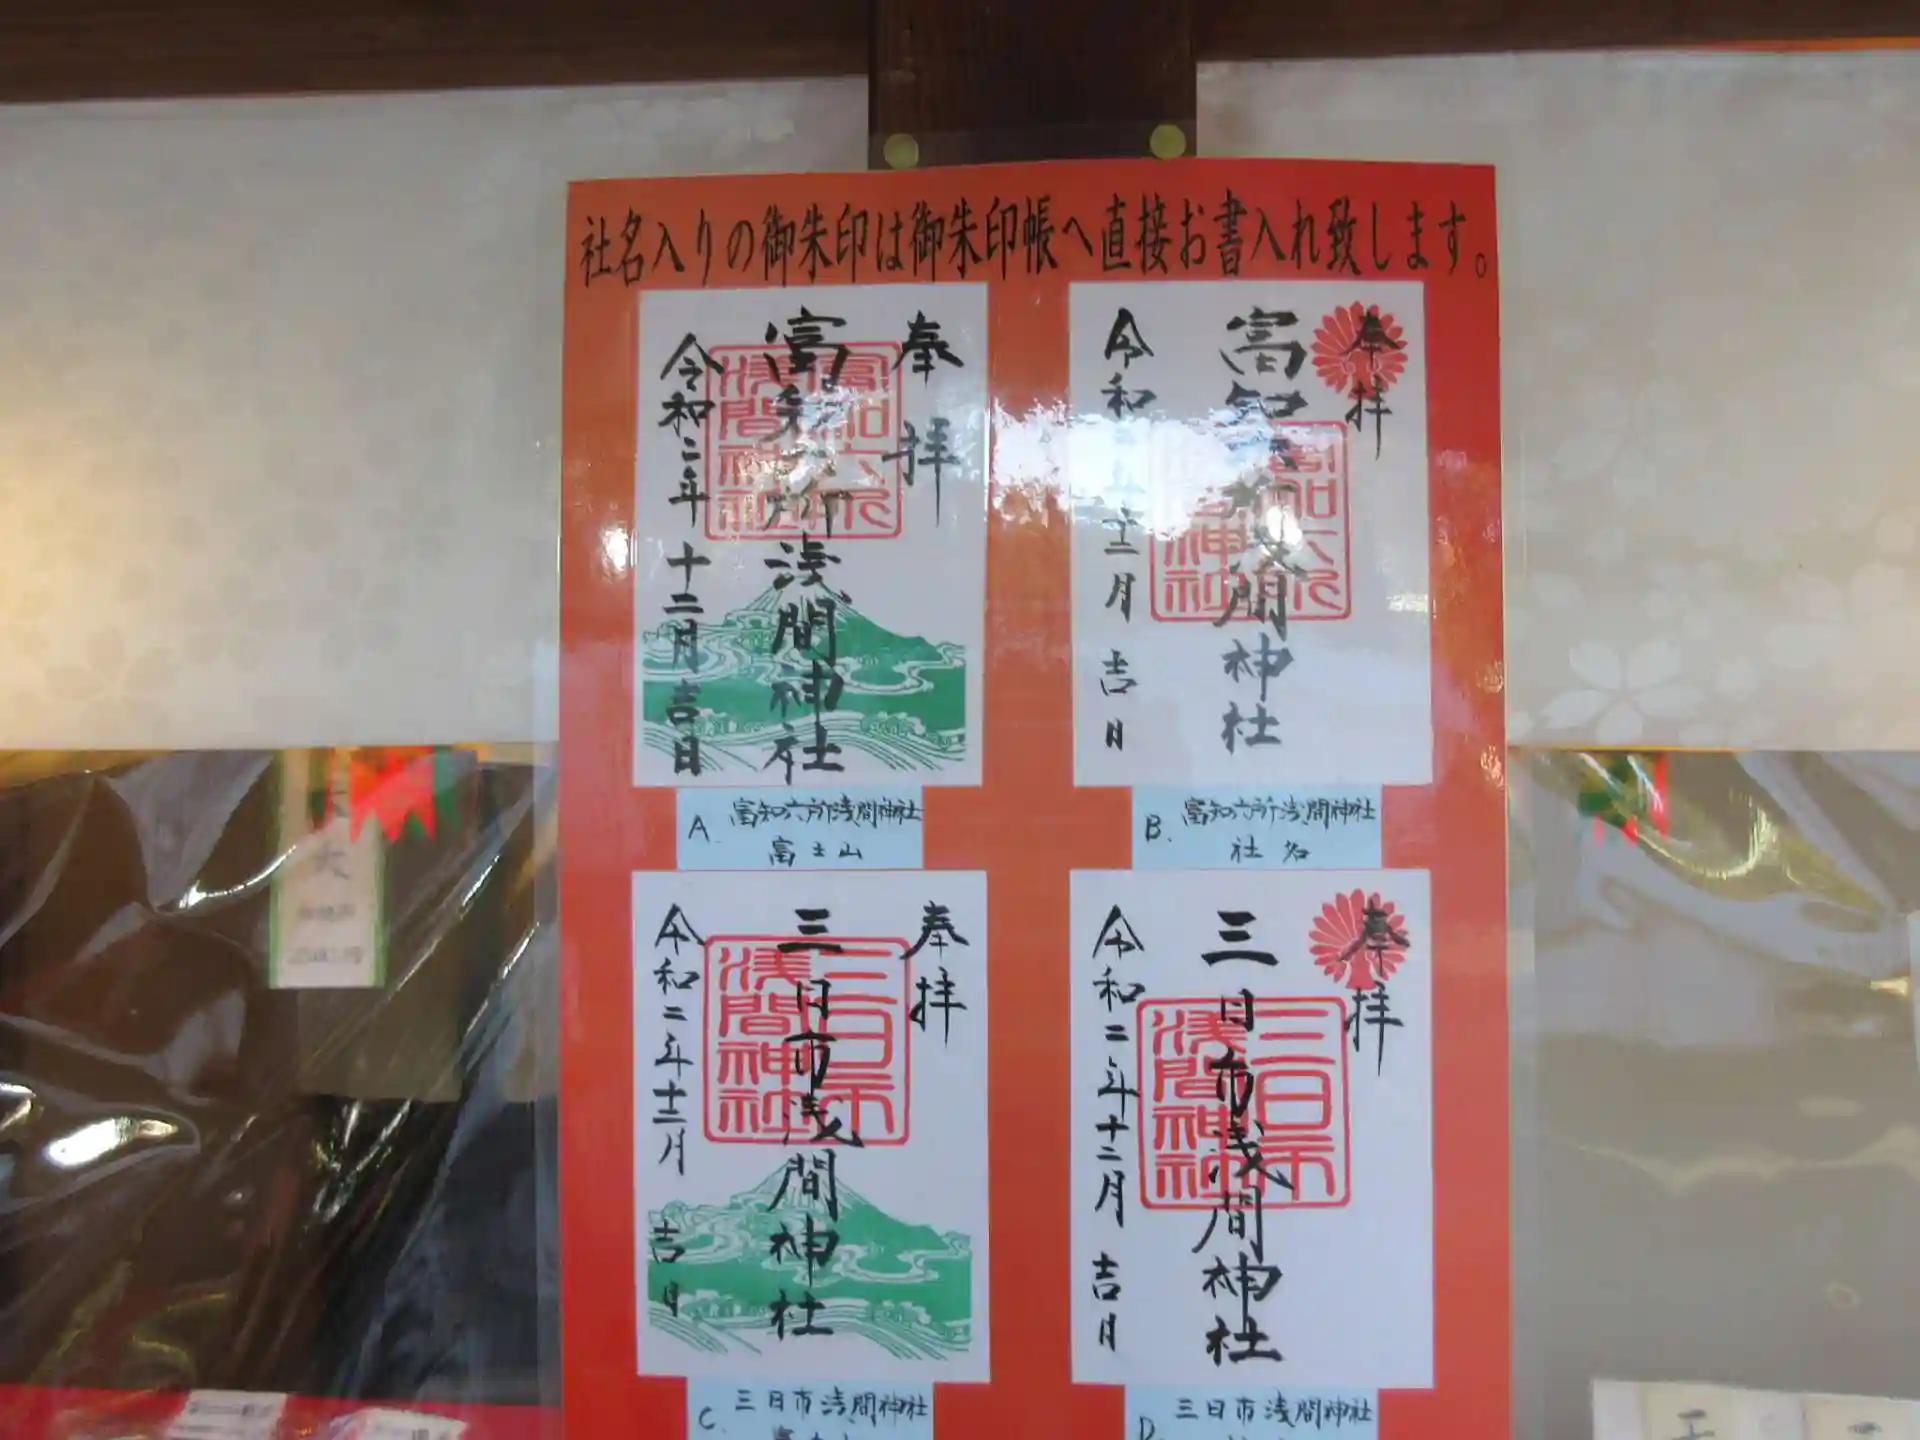 社名入りの御朱印は御朱印帳へ直接お書入れ致します。
奉拝
富知六所浅間神社
令和二年十二月吉日
富知六所
浅間神社
A. 富知六所浅間神社
富士山
奉拝
富知六所浅間神社
令和
十二月吉日
B. 富知六所浅間神社
社名
奉拝
三日市浅間神社
令和二年十二月吉日
三日市
浅間神社
C. 三日市浅間神社
奉拝
三日市浅間神社
令和二年十二月吉日
三日市
浅間神社
D. 三日市浅間神社